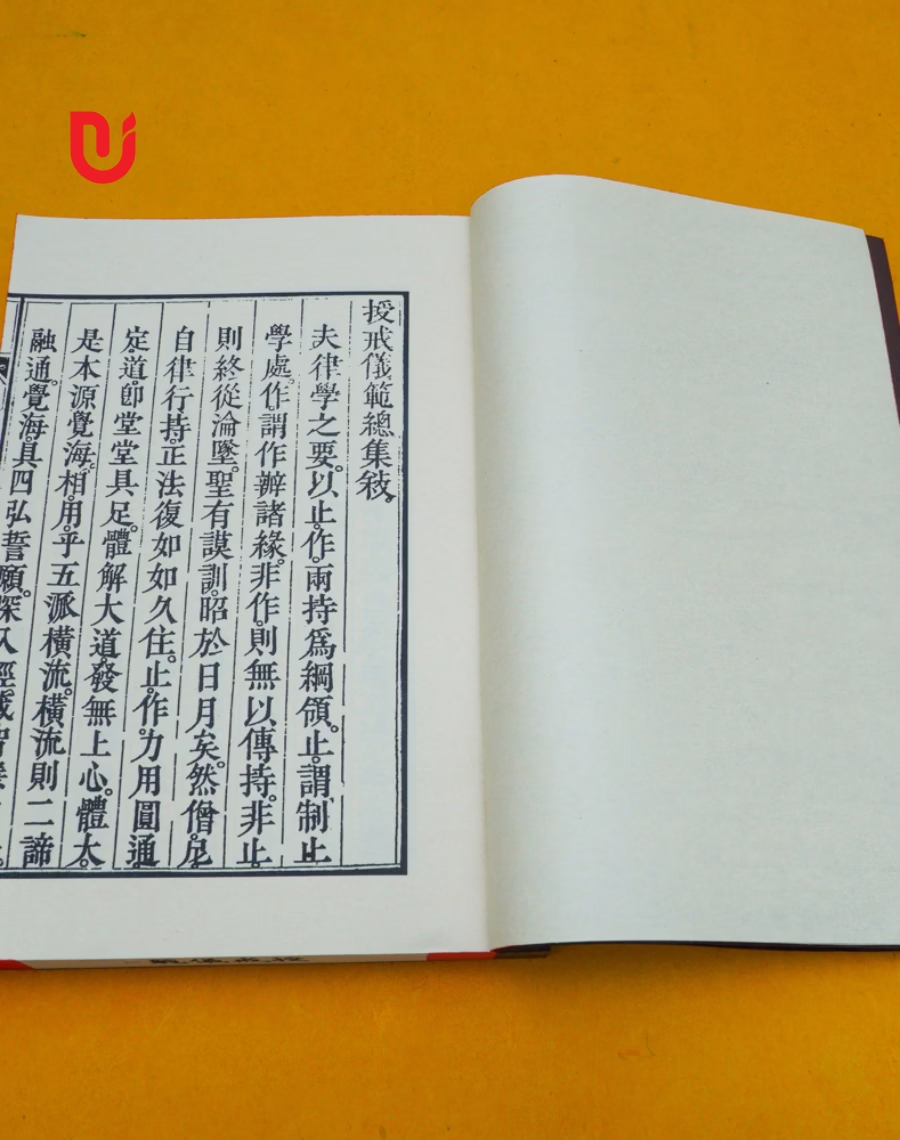 授戒儀範總集敍。
夫律學之要。以止。作。兩持爲綱領。止。謂制止
學處。作。謂作辦諸緣。非作。則無以傳持。非止。
則終從淪墜。聖有謨訓。昭於日月矣。然僧。尼。
自律行持。正法復如如久住。止。作。力用圓通
定。道。卽堂堂具足。體解大道。發無上心。體太。
是本源覺海。相。用。乎五派橫流。橫流則二諦
融通。覺海。具四弘誓願。深入經藏